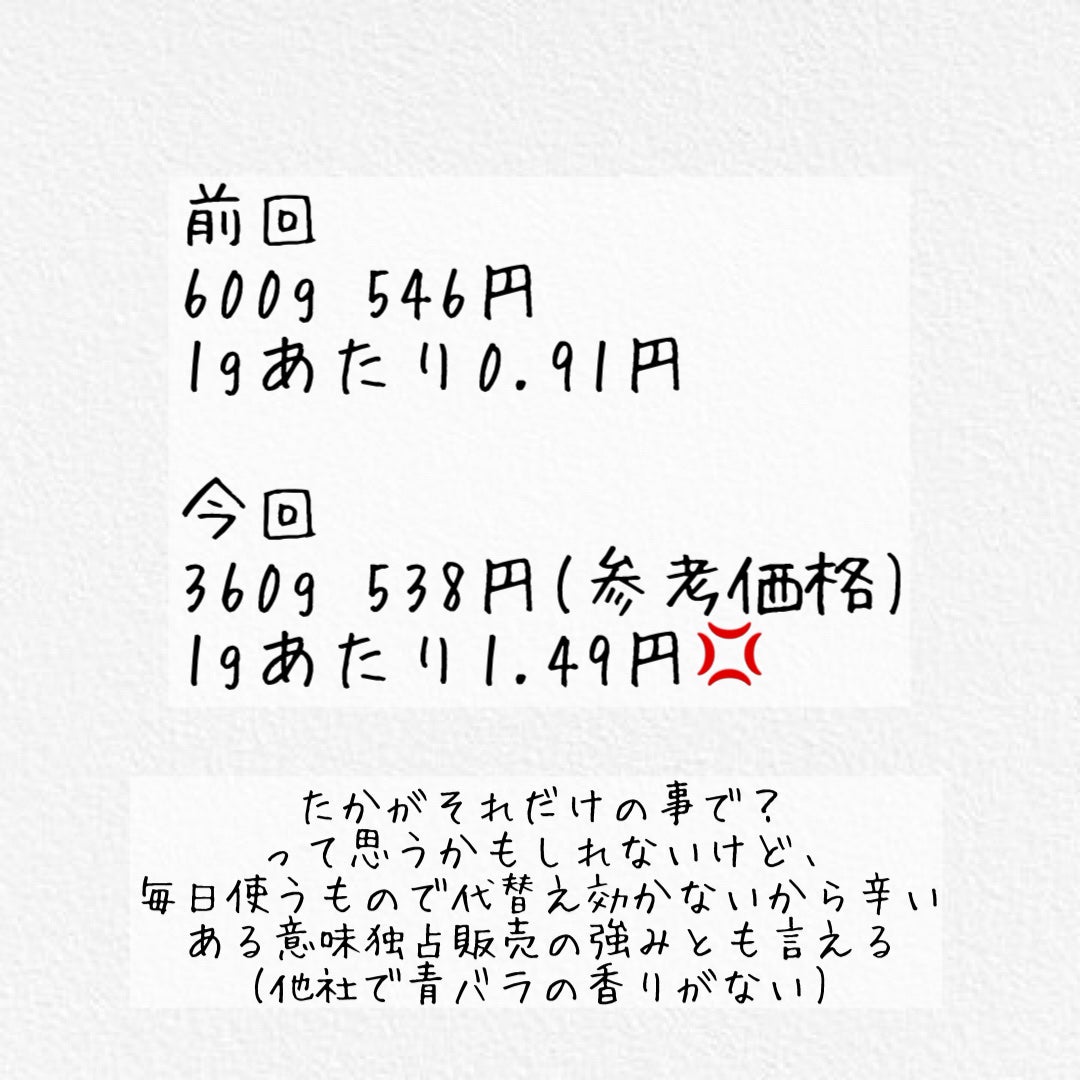 前回
600g 546円
1gあたり0.91円
今回
360g 538円(参考価格)
1gあたり1.49円💢
たかがそれだけの事で?
って思うかもしれないけど、
毎日使うもので代替え効かないから辛い
ある意味独占販売の強みとも言える
(他社で青バラの香りがない)